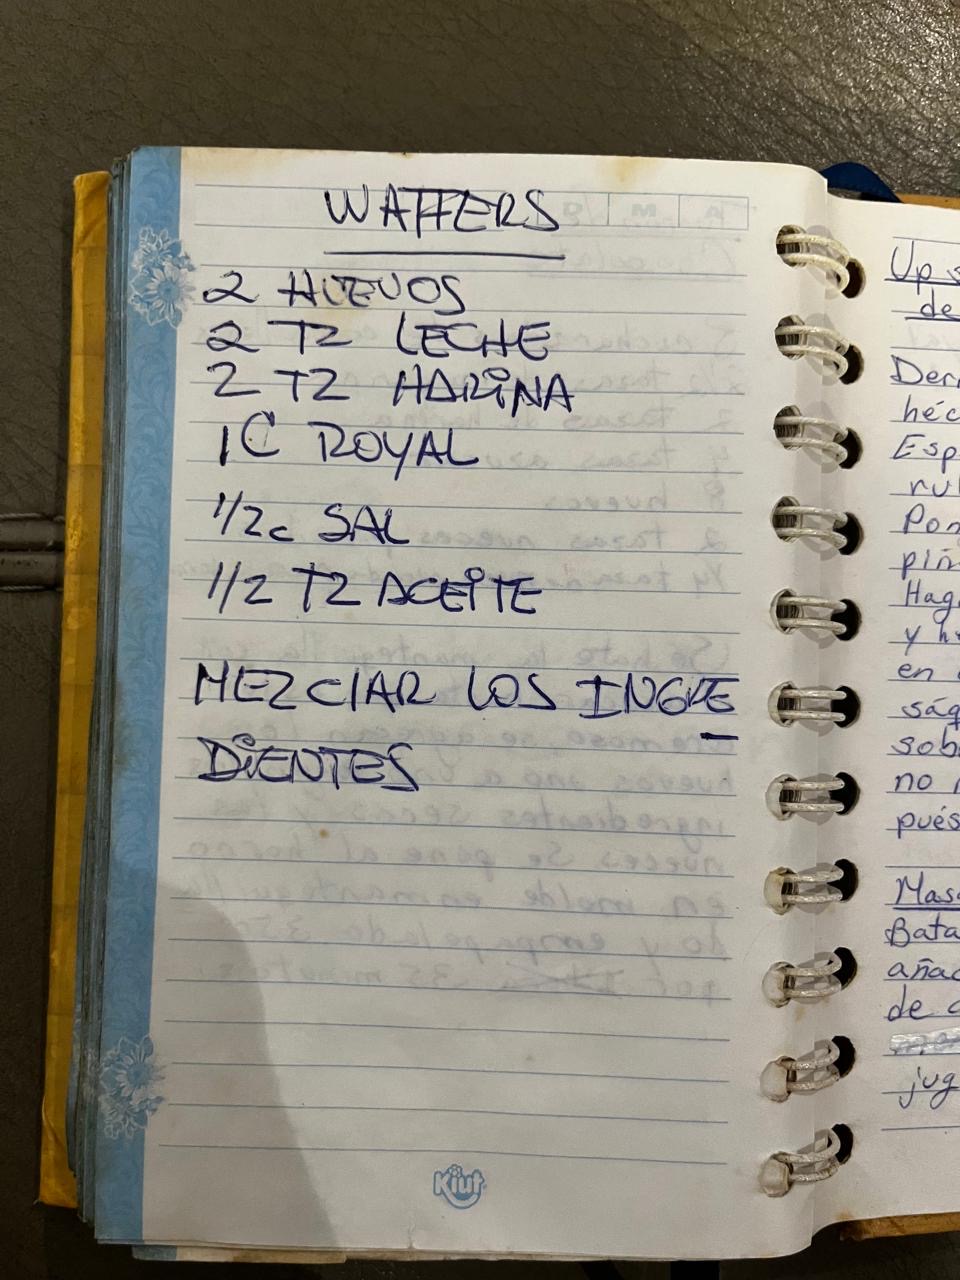 WAFFERS
2 HUEVOS
2 TZ LECHE
2 TZ HARINA
1C ROYAL
1/2c SAL
1/2 TZ ACEITE
MEZCLAR LOS INGRE
DIENTES
Kiut
Up s
de
Derr
héc
Esp
rul
Pon
piñ
Hag
y h
en
sáq
sob
no
pués
Masa
Bata
añad
de
jug